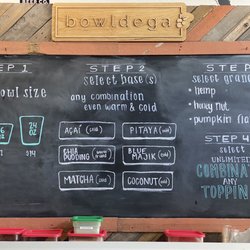 bowldega
STEP 1
bowl size
24
OZ
OZ
$14
STEP 2
select base(s)
any combination
even warm & cold
AÇAÍ (cold)
PITAYA (cold)
CHIA
PUDDING
BLUE
MAJIK (cold)
MATCHA (cold)
COCONUT (cold)
STEP
select gran
• hemp
• honey nut
• pumpkin
STEP 4
select
UNLIMITED
COMBINAT
ANY
TOPPIN